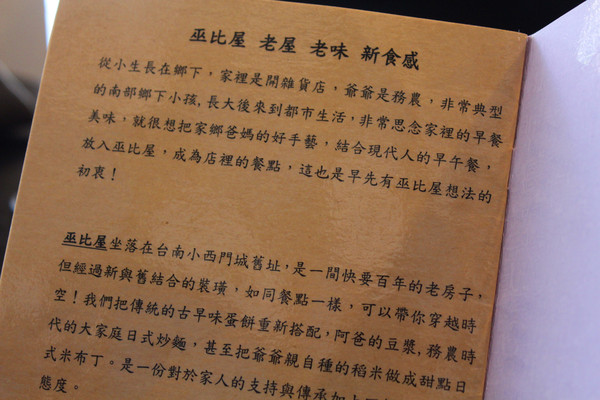 巫比屋 老屋 老味 新食感
從小生長在鄉下，家裡是開雜貨店，爺爺是務農，非常典型
的南部鄉下小孩,長大後來到都市生活，非常思念家裡的早餐
美味，就很想把家鄉爸媽的好手藝，結合現代人的早午餐，
放入巫比屋，成為店裡的餐點，這也是早先有巫比屋想法的
初衷！
巫比屋坐落在台南小西門城舊址，是一間快要百年的老房子，
但經過新與舊結合的裝璜，如同餐點一樣，可以帶你穿越時
空！我們把傳統的古早味蛋餅重新搭配，阿爸的豆漿,務農時
代的大家庭日式炒麵，甚至把爺爺親自種的稻米做成甜點日
式米布丁。是一份對於家人的支持與傳承如
態度。